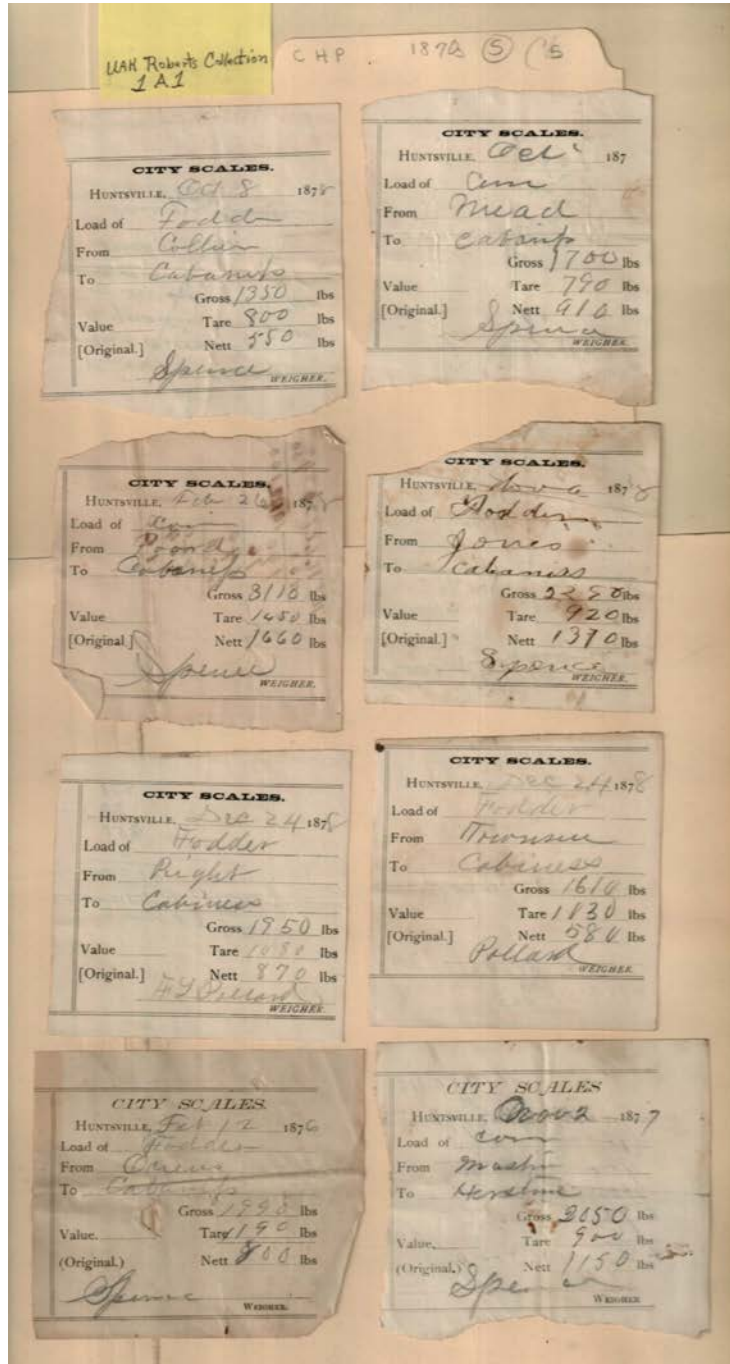 UAH Roberts Collection
1A1
CHP. 1878 5
CITY SCALES.
HUNTSVILLE, Oct 8 1878
Load of Fodder
From Collier
To Cabaniss
Gross 1350 lbs
Value Tare 800 lbs
[Original.] Nett 550 lbs
Spence
WEIGHER.
CITY SCALES.
HUNTSVILLE, Oct 187
Load of
From Mead
To Cabaniss
Gross 1700 lbs
Value Tare 790 lbs
[Original.] Nett 910 lbs
Spence
WEIGHER.
CITY SCALES.
HUNTSVILLE, Feb 26 1878
Load of
From
To Cabaniss
Gross 3110 lbs
Value Tare 1450 lbs
[Original.] Nett 1660 lbs
Spence
WEIGHER.
CITY SCALES.
HUNTSVILLE, 1878
Load of Fodder
From Jones
To Cabaniss
Gross 2290 lbs
Value Tare 920 lbs
[Original.] Nett 1370 lbs
Spence
WEIGHER.
CITY SCALES.
HUNTSVILLE, Dec 24 1878
Load of Fodder
From Right
To Cabiness
Gross 1950 lbs
Value Tare 1080 lbs
[Original.] Nett 870 lbs
Pollard
WEIGHER.
CITY SCALES.
HUNTSVILLE, Dec 24 1878
Load of Fodder
From
To Cabiness
Gross 1610 lbs
Value Tare 1030 lbs
[Original.] Nett 580 lbs
Pollard
WEIGHER.
CITY SCALES.
HUNTSVILLE, Feb 12 1876
Load of Fodder
From
To Cabaniss
Gross 1990 lbs
Value. Tare 1190 lbs
(Original.) Nett 800 lbs
Spence
WEIGHER.
CITY SCALES
HUNTSVILLE, Nov 2 1877
Load of corn
From
To
Gross 2050 lbs
Value. Tare 900 lbs
(Original.) Nett 1150 lbs
Spence
WEIGHER